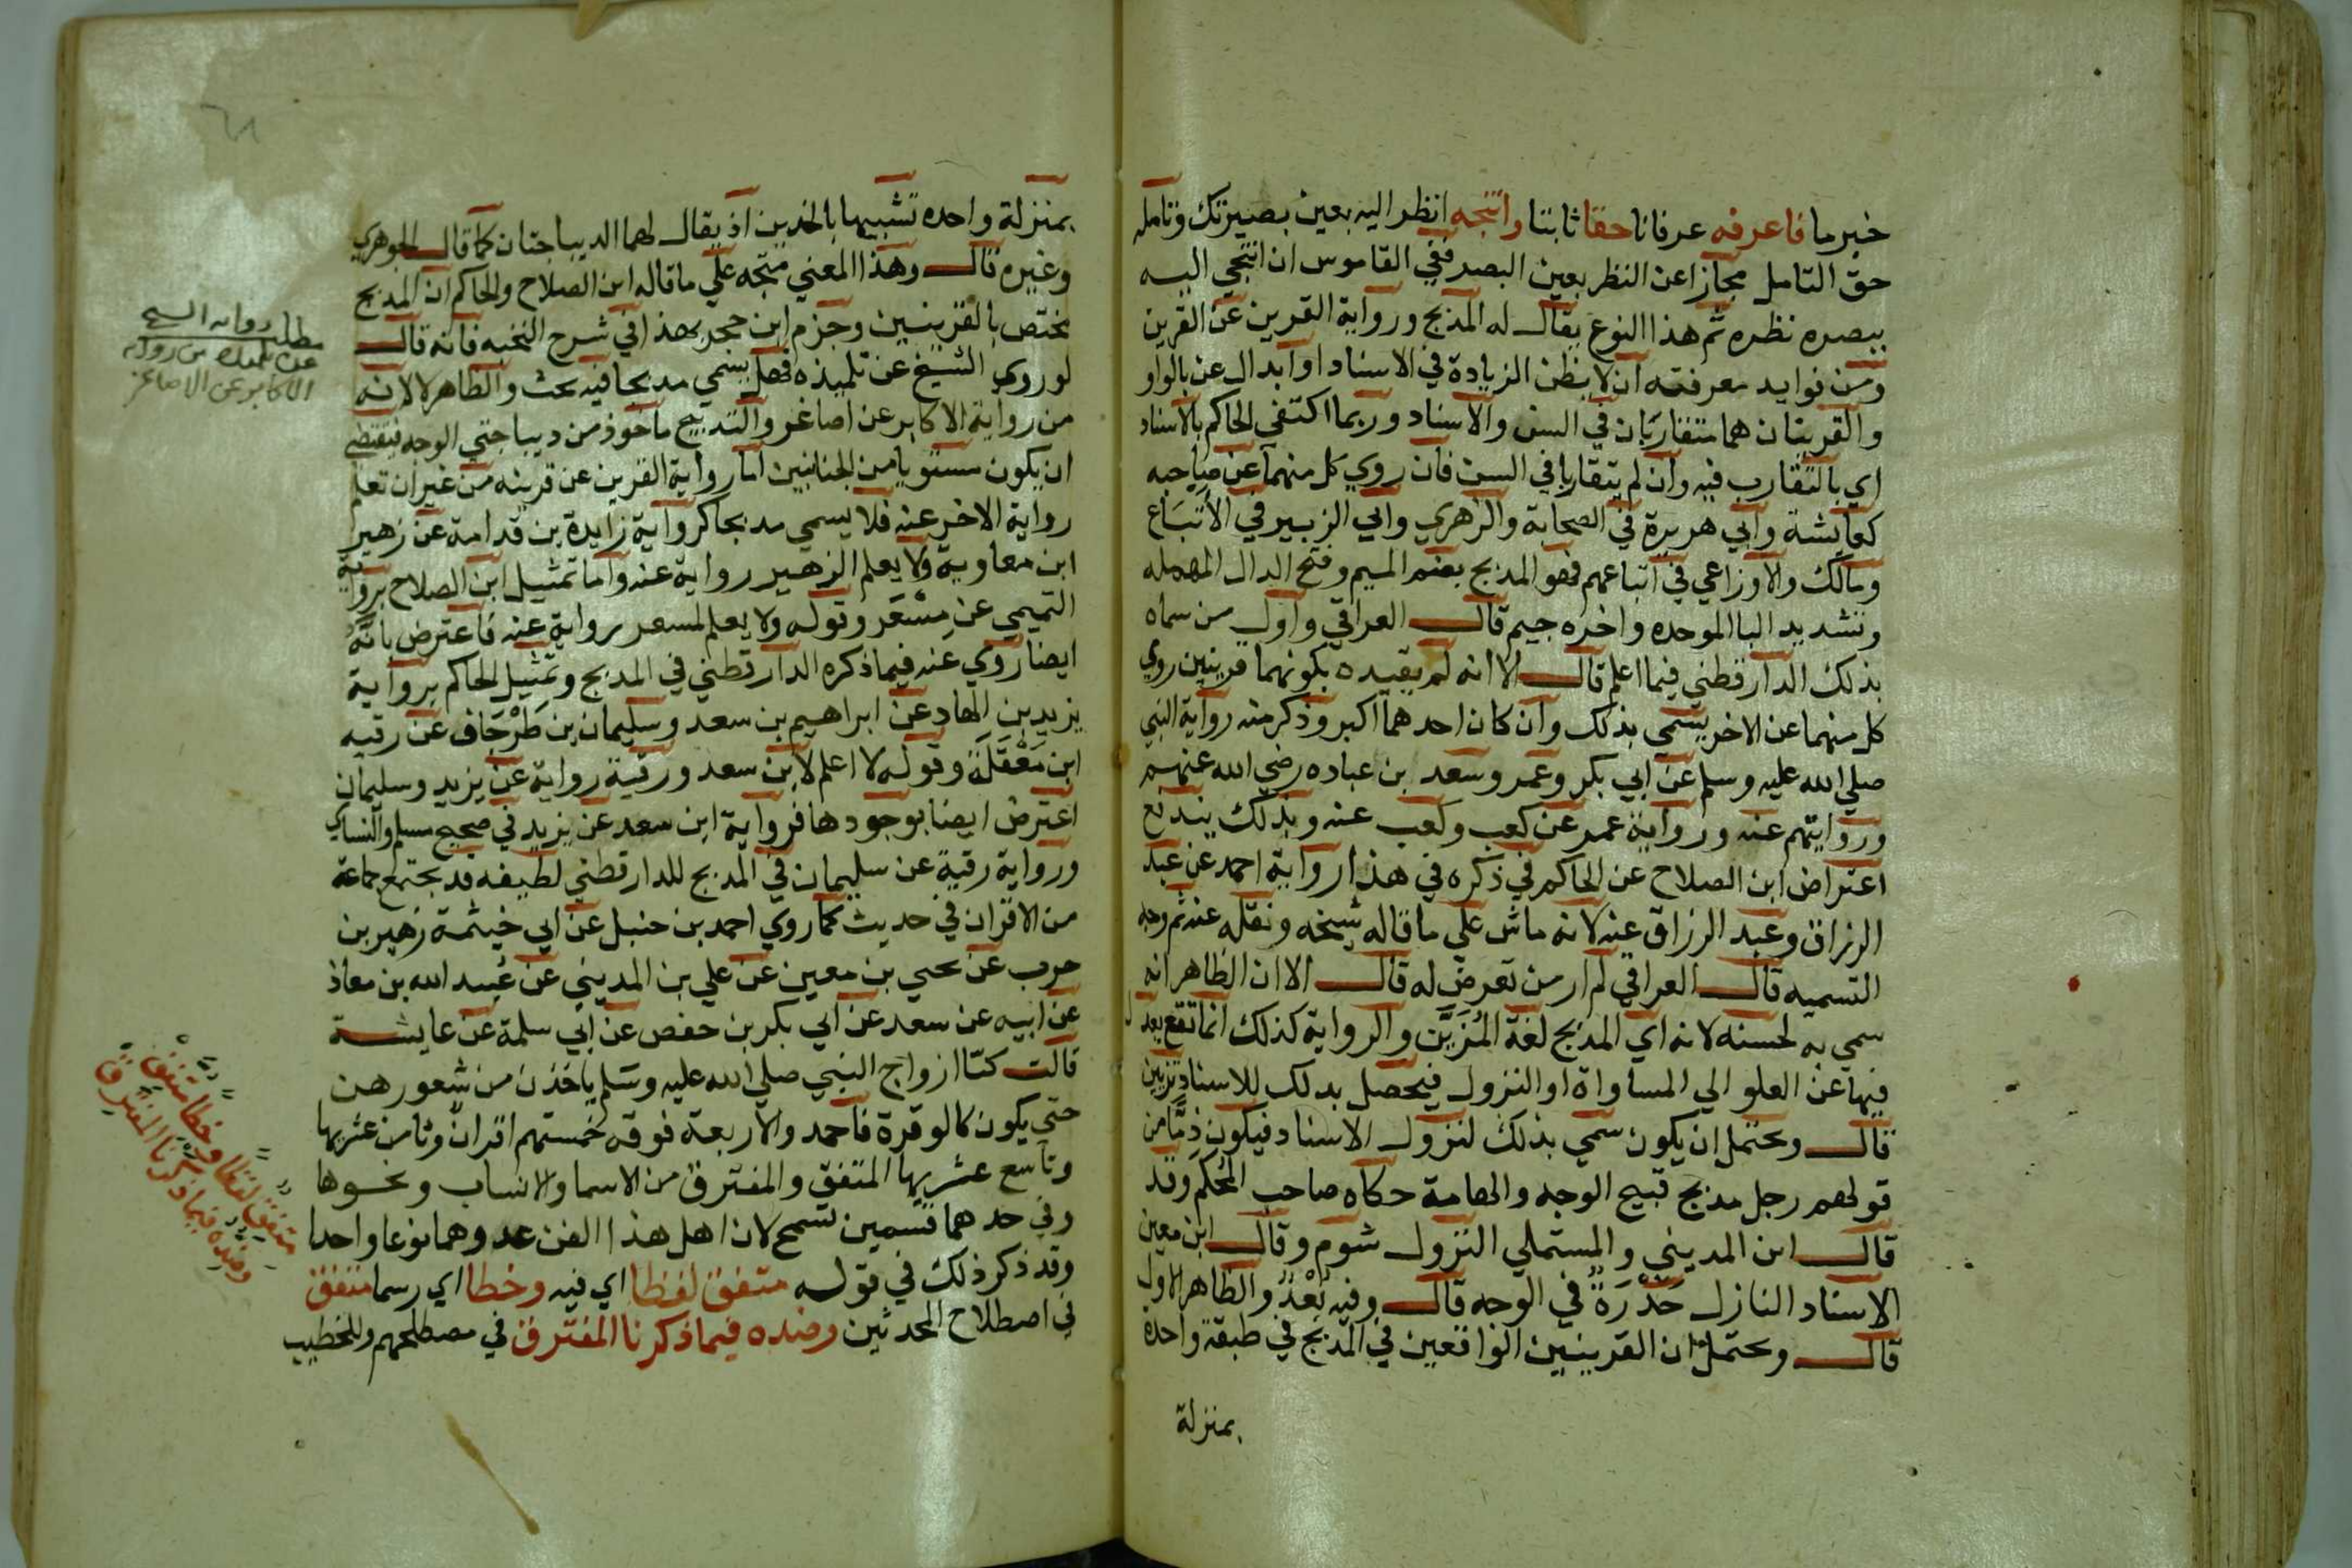 خبرما فاعرفه عرفانا حقا ثابتا وانتجه انظر اليه بعين بصيرتك وتامله
حق التامل مجازا عن النظر بعين البصر ففي القاموس ان انتجي اليه
ببصره نظره ثم هذا النوع يقال له المدبج ورواية القرين عن القرين
ومن فوايد معرفته ان لا يظن الزيادة في الاسناد او ابدال عن بالواو
والقرينان هما متقاربان في السن والاسناد وربما اكتفي الحاكم بالاسناد
اي بالتقارب فيه وان لم يتقاربا في السن فان روي كل منهما عن صاحبه
كعايشة وابي هريرة في الصحابة والزهري وابي الزبير في الاتباع
ومالك والاوزاعي في اتباعهم فهو المدبج بضم الميم وفتح الدال المهمله
وتشديد البا الموحده واخره جيم قال العراقي واول من سماه
بذلك الدارقطني فيما اعلم قال الا انه لم يقيده بكونهما قرينين روي
كل منهما عن الاخر يسمي بذلك وان كان احدهما اكبر وذكر منه رواية النبي
صلي الله عليه وسلم عن ابي بكر وعمر وسعد بن عباده رضي الله عنهم
وروايتهم عنه ورواية عمر عن كعب وكعب عنه وبذلك يندفع
اعتراض ابن الصلاح عن الحاكم في ذكره في هذا رواية احمد عن عبد
الرزاق وعبد الرزاق عنه لانه ماش علي ما قاله شيخه ونقله عنه ثم وجه
التسميه قال العراقي لم ار من تعرض له قال الا ان الظاهر انه
سمي به لحسنه لانه اي المدبج لغة المُزَيَّن والرواية كذلك انما تقع بعد
فيها عن العلو الي المساواة او النزول فيحصل بذلك للاسناد تزيين
قال ويحتمل ان يكون سمي بذلك لنزول الاسناد فيكون ذمّا من
قولهم رجل مدبج قبيح الوجه والهامة حكاه صاحب المُحكَم وقد
قال ابن المديني والمستملي النزول شوم وقال ابن معين
الاسناد النازل حَدْرَةٌ في الوجه قال وفيه بُعْدٌ والظاهر الاول
قال ويحتمل ان القرينين الواقعين في المدبج في طبقة واحدة
بمنزلة
بمنزلة واحده تشبيها بالخدين اذ يقال لهما الديباجتان كما قال الجوهري
وغيره قال وهذا المعني متجه علي ما قاله ابن الصلاح والحاكم ان المدبج
مختص بالقرينين وجزم ابن حجر بهذا في شرح النخبه فانه قال
لو روي الشيخ عن تلميذه فهل يسمي مدبجا فيه بحث والظاهر لا لانه
من رواية الاكابر عن اصاغر والتدبيج ماخوذ من ديباجتي الوجه فيقتضي
ان يكون مستويا من الجانبين اما رواية القرين عن قرينه من غير ان تعلم
رواية الاخر عنه فلا يسمي مدبجا كرواية زايدة بن قدامة عن زهير
ابن معاوية ولا يعلم الزهير رواية عنه واما تمثيل ابن الصلاح برواية
التميمي عن مِسْعَر وقوله ولا يعلم لمسعر رواية عنه فاعترض بانه
ايضا روي عنه فيما ذكره الدارقطني في المدبج وتمثيل الحاكم برواية
يزيد بن الهاد عن ابراهيم بن سعد وسليمان بن طَرْخاف عن رقبه
ابن مَعْقَلَة وقوله لا اعلم لابن سعد ورقبة رواية عن يزيد وسليمان
اعترض ايضا بوجودها فرواية ابن سعد عن يزيد في صحيح مسلم والنساي
ورواية رقبة عن سليمان في المدبج للدارقطني لطيفه قد يجتمع جماعة
من الاقران في حديث كما روي احمد بن حنبل عن ابي خيثمة زهير بن
حرب عن يحيي بن معين عن علي بن المديني عن عبيد الله بن معاذ
عن ابيه عن سعد عن ابي بكر بن حفص عن ابي سلمة عن عايشة
قالت كنّا ازواج النبي صلي الله عليه وسلم ياخذن من شعورهن
حتي يكون كالوفرة فاحمد والاربعة فوقه خمستهم اقران وثامن عشريها
وتاسع عشريها المتفق والمفترق من الاسما والانساب ونحوها
وفي حدهما قسمين تسمح لان اهل هذا الفن عدوهما نوعا واحدا
وقد ذكر ذلك في قوله متفق لفظا اي فيه وخطا اي رسما متفق
في اصطلاح المحدثين وضده فيما ذكرنا المفترق في مصطلحهم وللخطيب
مطلب رواية الشيخ
عن تلميذه من رواية
الاكابر عن الاصاغر
متفق لفظا وخطا متفق
وضده فيما ذكرنا المفترق